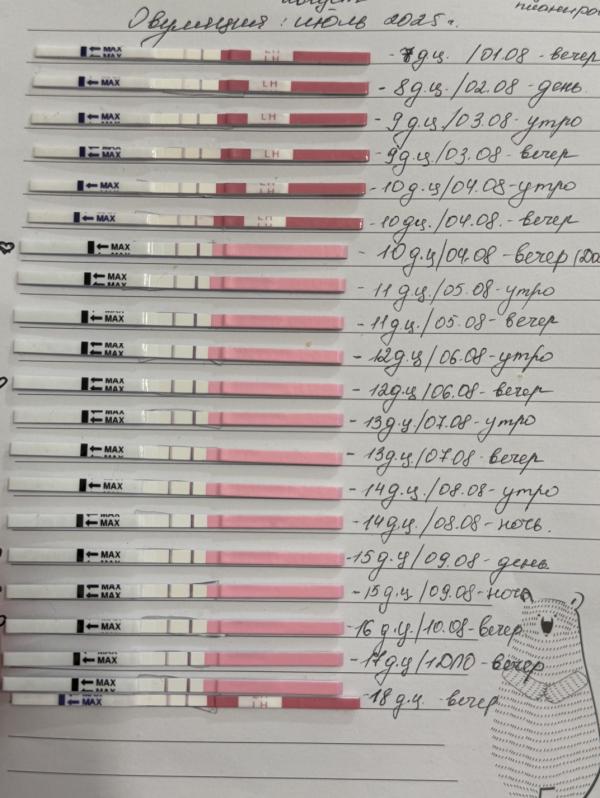 август
планиро
Овуляция: июль 2025г.
← MAX LH - 7 д.ц. /01.08 - вечер
← MAX LH - 8 д.ц. /02.08 - день
← MAX LH - 9 д.ц. /03.08 - утро
← MAX LH - 9 д.ц. /03.08 - вечер
← MAX LH - 10 д.ц /04.08 - утро
← MAX LH - 10 д.ц. /04.08. - вечер
← MAX - 10 д.ц/04.08 - вечер
← MAX - 11 д.ц. /05.08 - утро
← MAX - 11 д.ц. /05.08 - вечер
← MAX - 12 д.ц /06.08 - утро
← MAX - 12 д.ц /06.08 - вечер
← MAX - 13 д.ц /07.08 - утро
← MAX - 13 д.ц /07.08 - вечер
← MAX - 14 д.ц. /08.08 - утро
← MAX - 14 д.ц. /08.08 - ночь.
← MAX - 15 д.ц /09.08 - день
← MAX - 15 д.ц /09.08 - ночь
← MAX - 16 д.ц /10.08 - вечер
← MAX - 17 д.ц /1ДПО - вечер
← MAX
← MAX LH - 18 д.ц. вечер